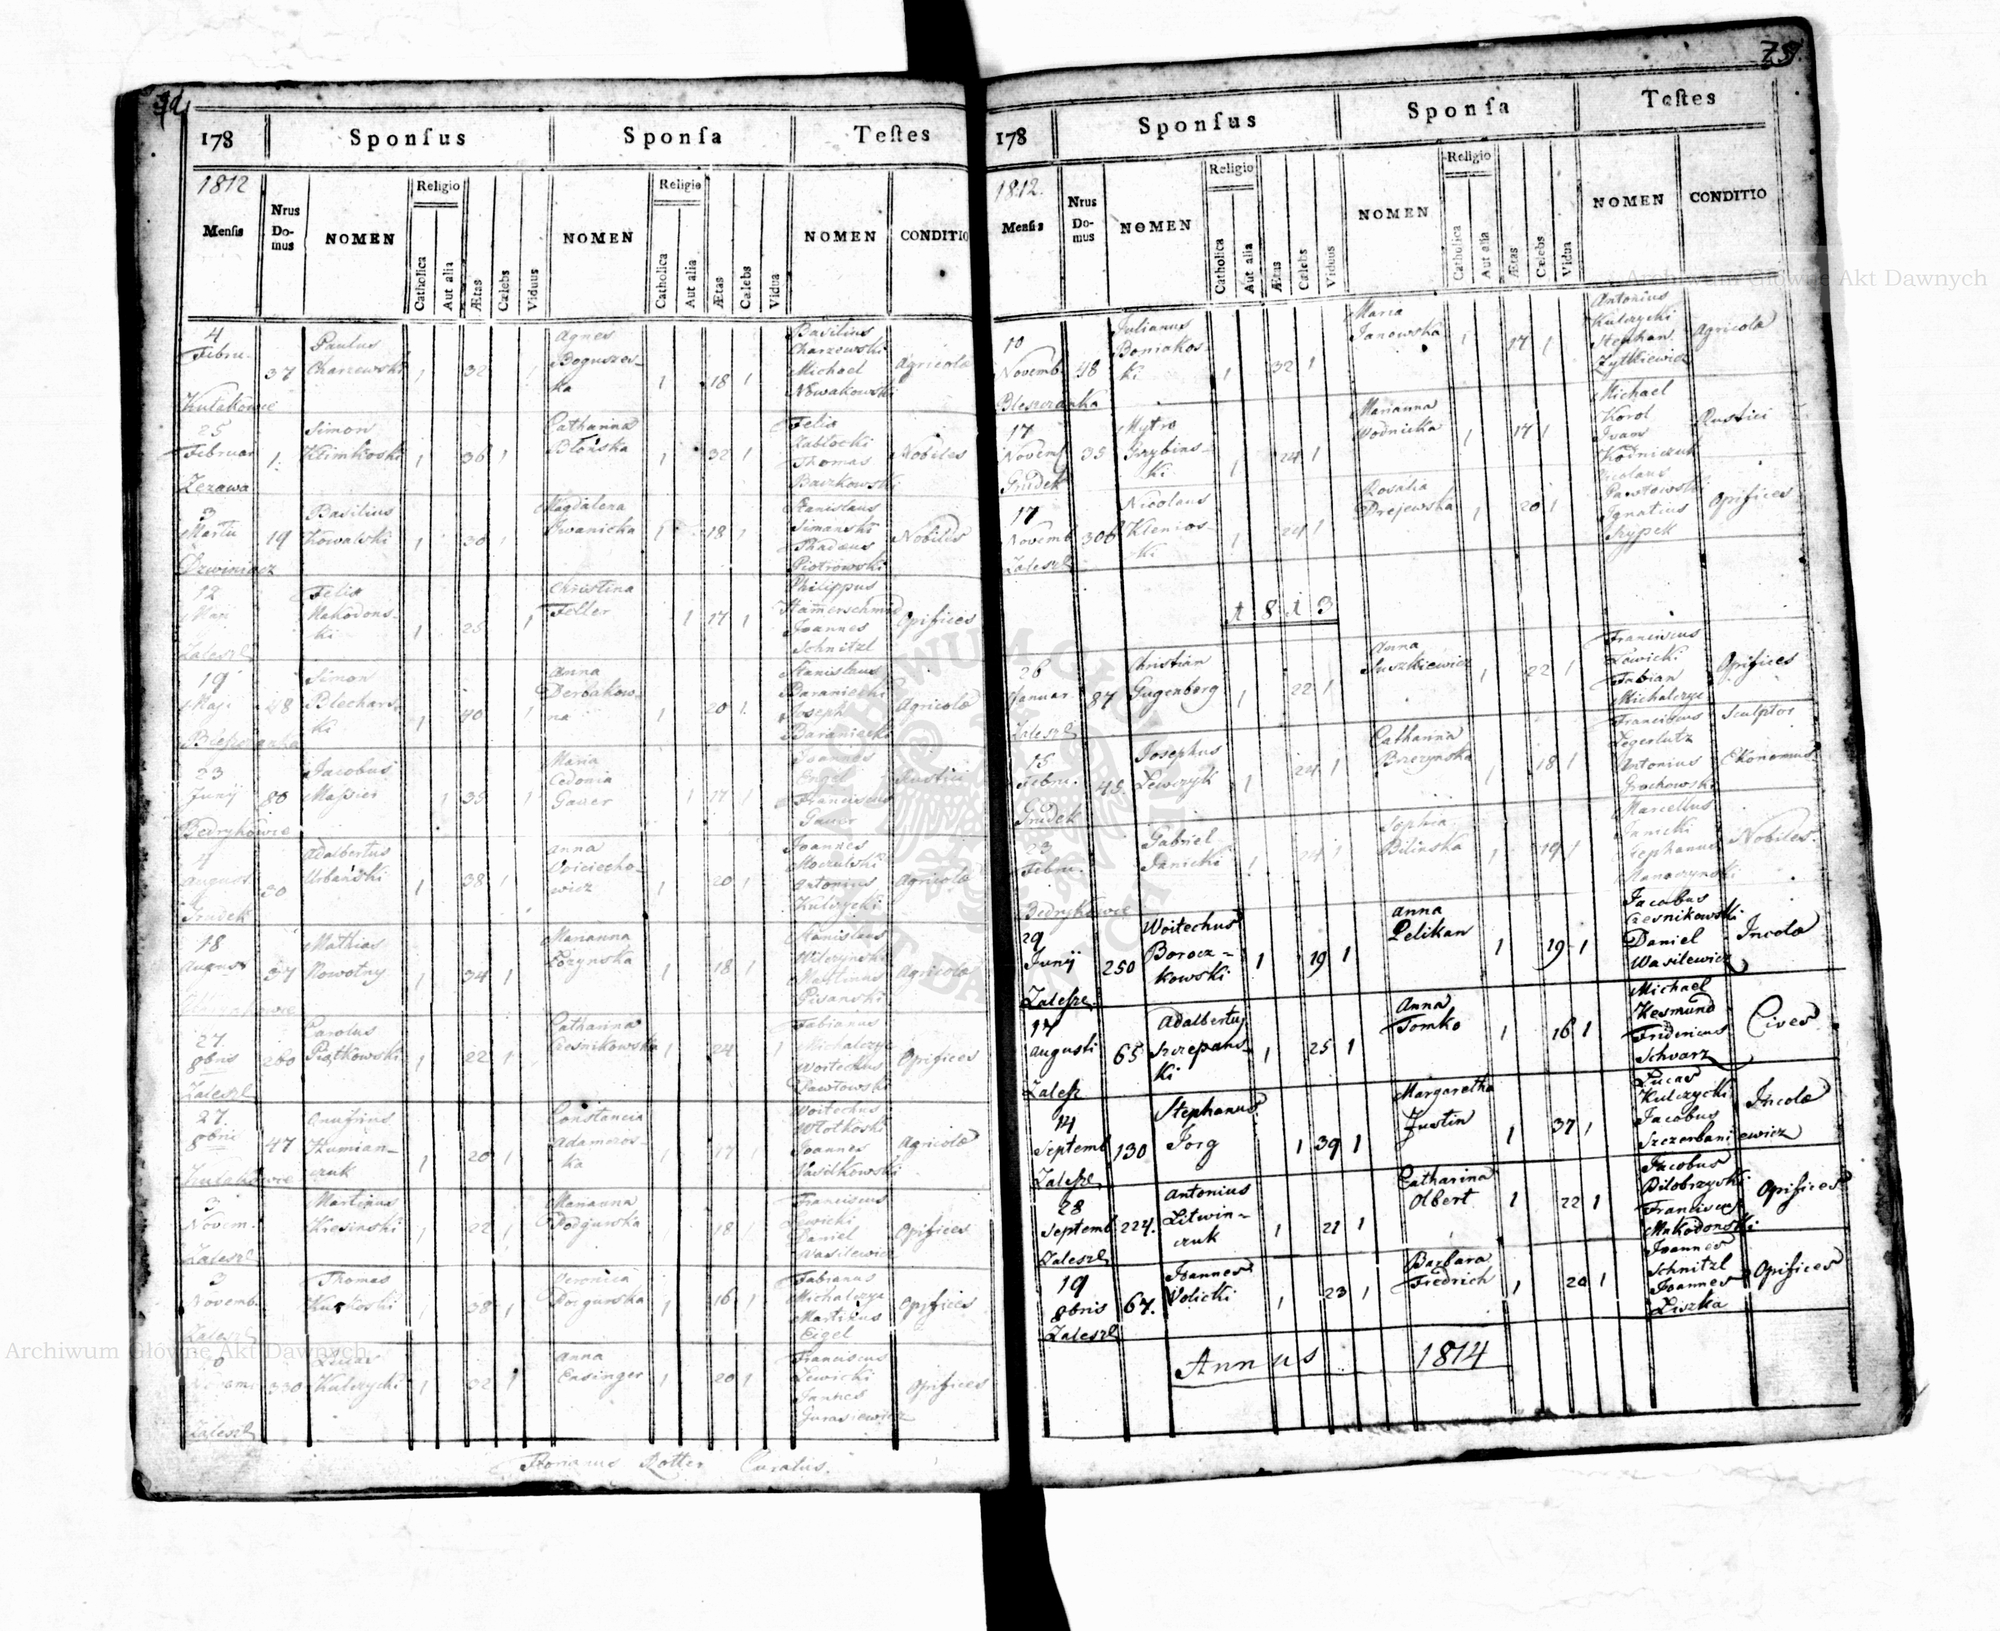 178
Sponſus
Sponſa
Teſtes
1812
Menſis
Nrus Do-mus
NOMEN
Religio
Catholica
Aut alia
Ætas
Cælebs
Viduus
NOMEN
Religio
Catholica
Aut alia
Ætas
Cælebs
Vidua
NOMEN
CONDITIO
4 Paulus Agnes Basilius
Febru. 37 Charzewski 1 32 1 Boguszes- Charzewski Agricolæ
ka 1 18 1 Michael
Kulakowce Nowakowski
25 Simon Catharina Felix
Februar 1. Klimkoski 1 36 1 Błońska 1 32 1 Zabłocki Nobiles
Thomas
Zezawa Baczkowski
3 Basilius Magdalena Stanislaus
Martii 19 Kowalski 1 30 1 Iwanicka 1 18 1 Simanski Nobiles
Thadæus
Dzwiniacz Piotrowski
12 Felix Christina Philippus
Maji Makodons- Feller 1 17 1 Hamerschmid Opifices
ki 1 25 1 Joannes
Zaleszl Schnitzl
19 Simon Anna Stanislaus
Maji 48 Blechars- Derbakow- Baraniecki
ki 1 40 1 na 1 20 1. Joseph Agricolæ
Bleszczanka Baraniecki
23 Jacobus Maria Joannes
Junij 80 Massier 1 35 1 Cedonia Engel Rustici
Gauer 1 17 1 Franciscus
Bedrykowce Gauer
4 Adalbertus Anna Joannes
August. 20 Urbański 1 38 1 Woiciecho- Moczulski
wicz 1 20 1 Antonius Agricolæ
Grudek Kulczycki
18 Mathias Marianna Stanislaus
August 37 Nowotny 1 34 1 Łozynska 1 18 1 Wilczynski
Martinus Agricolæ
Pisanski
27. Carolus Catharina Fabianus
8bris 260 Piątkowski 1 22 1 Czesnikowska 1 24 1 Michalczyc Opifices
Woitechus
Zaleszl Pawłowski
27. Onufrius Constancia Woitechus
8bris 47 Humian- Adameros- Włotkoski
czuk 1 20 1 ka 1 17 1 Joannes Agricolæ
Kulakowce Wasilkowski
3 Martinus Marianna Franciscus
Novem. Kresinski 1 22 1 Podgurska 1 18 1 Lewicki Opifices
Daniel
Zaleszl Wasilewicz
3 Thomas Veronica Fabianus
Novemb. Kurkoski 1 38 1 Podgurska 1 16 1 Michalczyc Opifices
Martinus
Zaleszl Eigel
10 Lucas Anna Franciscus
330 Kulczycki 1 32 1 Ensinger 1 20 1 Lewicki Opifices
Joannes
Zaleszl Gurasiewicz
Florianus Rotter Curatus.
79.
178
Sponſus
Sponſa
Teſtes
1812.
Menſis
Nrus Do-mus
NOMEN
Religio
Catholica
Aut alia
Ætas
Cælebs
Viduus
NOMEN
Religio
Catholica
Aut alia
Ætas
Cælebs
Vidua
NOMEN
CONDITIO
10 Julianus Maria Antonius
Novemb 48 Boniakos- Janowska 1 17 1 Kulczycki Agricolæ
ki 1 32 1 Stephan
Bleszczanka Zytkiewicz
17 Hytro Marianna Michael
Novemb 35 Grzybins- Wodnicka 1 17 1 Korol Rustici
ki 1 24 1 Iwan
Grudek Kodniczuk
17 Nicolaus Rosalia Nicolaus
Novemb 306 Klenios- Drejewska 1 20 1 Pawłowski Opifices
ki 1 24 1 Ignatius
Zaleszl Szypek
1813
26 Christian Anna Franciscus
Januar 87 Gugenberg 1 22 1 Suszkiewicz 1 22 1 Lowicki Opifices
Fabian
Zaleszl Michalczyc
15 Josephus Catharina Franciscus Sculptor
Febru. 45. Lewczyk 1 24 1 Brzezynska 1 18 1 Zegerlutz
Antonius Ekonomus
Grudek Grochowski
23 Gabriel Sophia Marcellus
Febru. Janicki 1 24 1 Bilinska 1 19 1 Janicki Nobiles.
Stephanus
Bedrykowce Manaczynski
29 Woitechus Anna Jacobus
Junij 250 Borocz- 1 19 1 Pelikan 1 19 1 Czesnikowski Incolæ
kowski Daniel
Zaleszl. Wasilewicz
17 Adalbertus Anna Michael
Augusti 65 Szczepans- 1 25 1 Tomko 1 16 1 Kesmund Cives
ki Fridericus
Zalesz Schwarz
14 Stephanus Margaretha Lucas
Septemb 130 Jorg 1 39 1 Justin 1 37 1 Kulczycki Incolæ
Jacobus
Zaleszl. Szczerbaniewicz
28 Antonius Catharina Jacobus
Septemb 224. Litwin- 1 21 1 Olbert 1 22 1 Bilobrzyski Opifices
czuk Franciscus
Zaleszl Makodonski
19 Joannes Barbara Joannes
8bris 67. Wolicki 1 23 1 Friedrich 1 20 1 Schnitzl Opifices
Joannes
Zaleszl Liszka
Annus 1814
Archiwum Główne Akt Dawnych
Archiwum Główne Akt Dawnych
ARCHIWUM GŁÓWNE AKT DAWNYCH